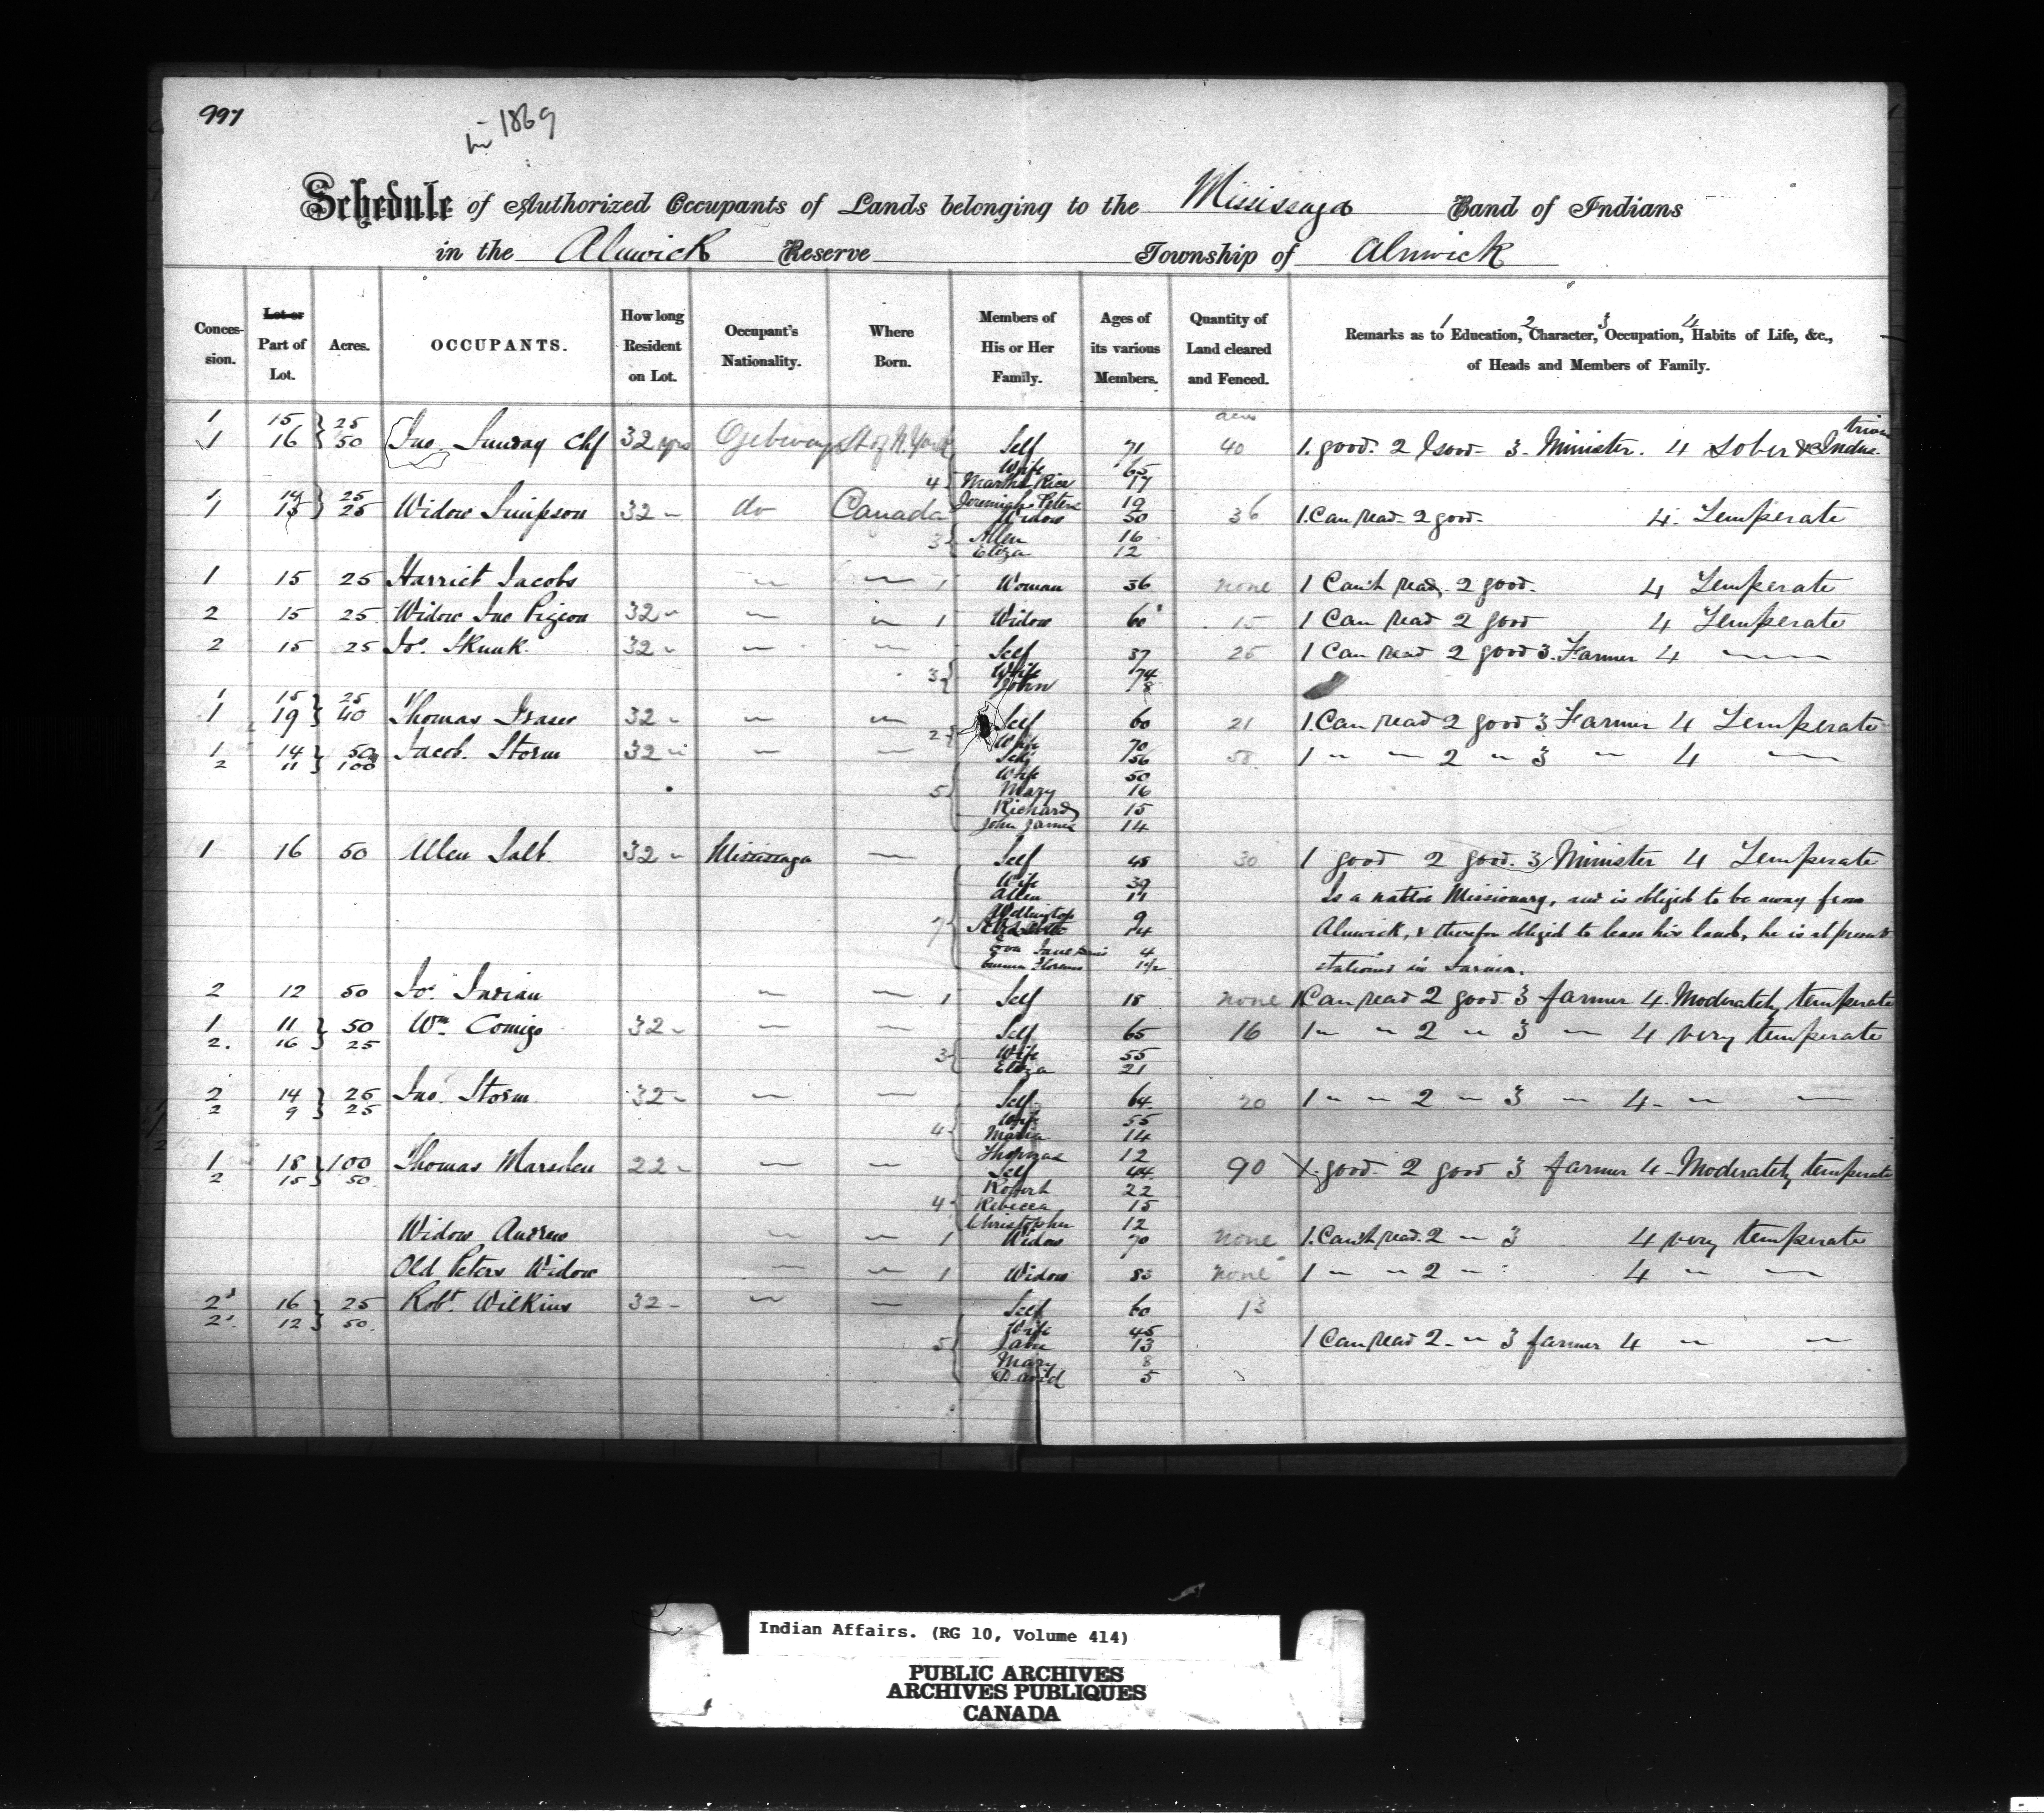 997
in 1869
Schedule of Authorized Occupants of Lands belonging to the Mississaga Band of Indians
in the Alnwick Reserve Township of Alnwick
Conces-sion. Lot or Part of Lot. Acres. OCCUPANTS. How long Resident on Lot. Occupant's Nationality. Where Born. Members of His or Her Family. Ages of its various Members. Quantity of Land cleared and Fenced. Remarks as to 1 Education, 2 Character, 3 Occupation, 4 Habits of Life, &c., of Heads and Members of Family.
1 15 } 25 acres
1 16 } 50 Jno. Sunday Chf 32 yrs Ojebway St of N. York Self 71 40 1. good. 2 Good 3. Minister. 4 Sober & Indus-trious
Wife 65
4 { Martha Rice 17
1 14 } 25 Jeremiah Peters 19
1 15 } 25 Widow Simpson 32 " do Canada Widow 50 36 1. Can read 2 good. 4. Temperate
3 { Allen 16
Eliza 12
1 15 25 Harriet Jacobs " " 1 Woman 36 none 1 Can't read, 2 good. 4 Temperate
2 15 25 Widow Jno Pigeon 32 " " " 1 Widow 60 15 1 Can read 2 good 4 Temperate
2 15 25 Jos. Skunk 32 " " " Self 37 25 1 Can read 2 good 3. Farmer 4 "
3 { Wife 74
John 18
1 15 } 25
1 19 } 40 Thomas Fraser 32 " " " Self 60 21 1. Can read 2 good 3 Farmer 4 Temperate
2 { Wife 70
1 14 } 50 Jacob. Storm 32 " " " Self 56 58. 1 " " 2 " 3 " 4 "
2 11 } 100
Wife 50
5 { Mary 16
Richard 15
John James 14
1 16 50 Allen Salt 32 " Mississaga " Self 48 30 1 good 2 good. 3 Minister 4 Temperate
Wife 39
Allen 11 Is a native Missionary, and is obliged to be away from
Wellington 9
7 { 4 Alnwick, & therefore obliged to lease his land, he is at present
Eva Jane 4
Emma Florence 1½ stationed in Sarnia.
2 12 50 Jos. Indian " " 1 Self 18 none 1 Can read 2 good. 3 farmer 4. Moderately temperate
1 11 } 50 Wm. Comego 32 " " " Self 65 16 1 " " 2 " 3 " 4 very temperate
2. 16 } 25
3 { Wife 55
Eliza 21
2 14 } 25 Jno. Storm 32 " " " Self 64 20 1 " " 2 " 3 " 4 " "
2 9 } 25
Wife 55
4 { Maria 14
Thomas 12
1 18 } 100 Thomas Marsden 22 " " " Self 44 90 1. good. 2 good 3 farmer 4 Moderately temperate
2 15 } 50
Robert 22
4 { Rebecca 15
Christopher 12
Widow Andrew " " 1 Widow 70 none 1. Can't read. 2 " 3 4 very temperate
Old Peters Widow " " 1 Widow 83 none 1 " " 2 " 4 " "
2 16 } 25 Robt. Wilkins 32 " " " Self 60 13
2 12 } 50.
Wife 45
5 { Jane 13 1 Can read 2 " 3 farmer 4 " "
Mary 8
David 5
Indian Affairs. (RG 10, Volume 414)
PUBLIC ARCHIVES
ARCHIVES PUBLIQUES
CANADA